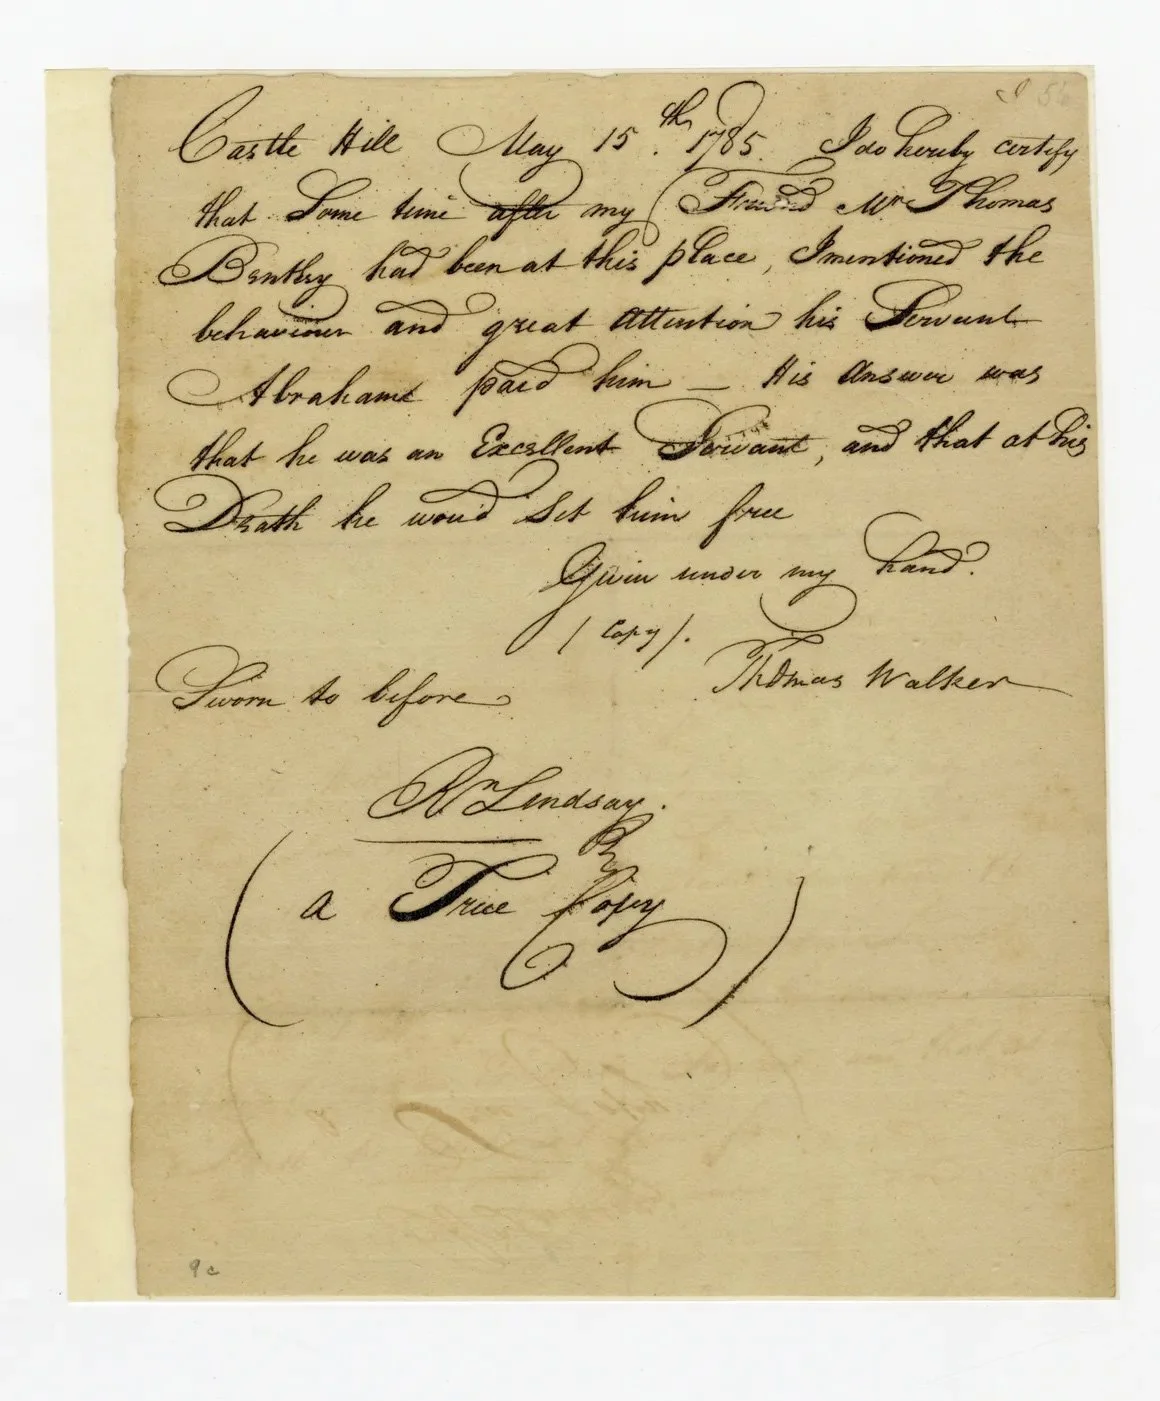 Castle Hill May 15.th 1785. I do hereby certify
that Some time after my Friend Mr Thomas
Bentley had been at this place, I mentioned the
behaviour and great Attention his Servant
Abraham paid him — His Answer was
that he was an Excellent Servant, and that at his
Death he woud Set him free
Given under my hand.
/ Copy /.
Thomas Walker
Sworn to before
Rn Lendsay.
(a True Copy)
9c